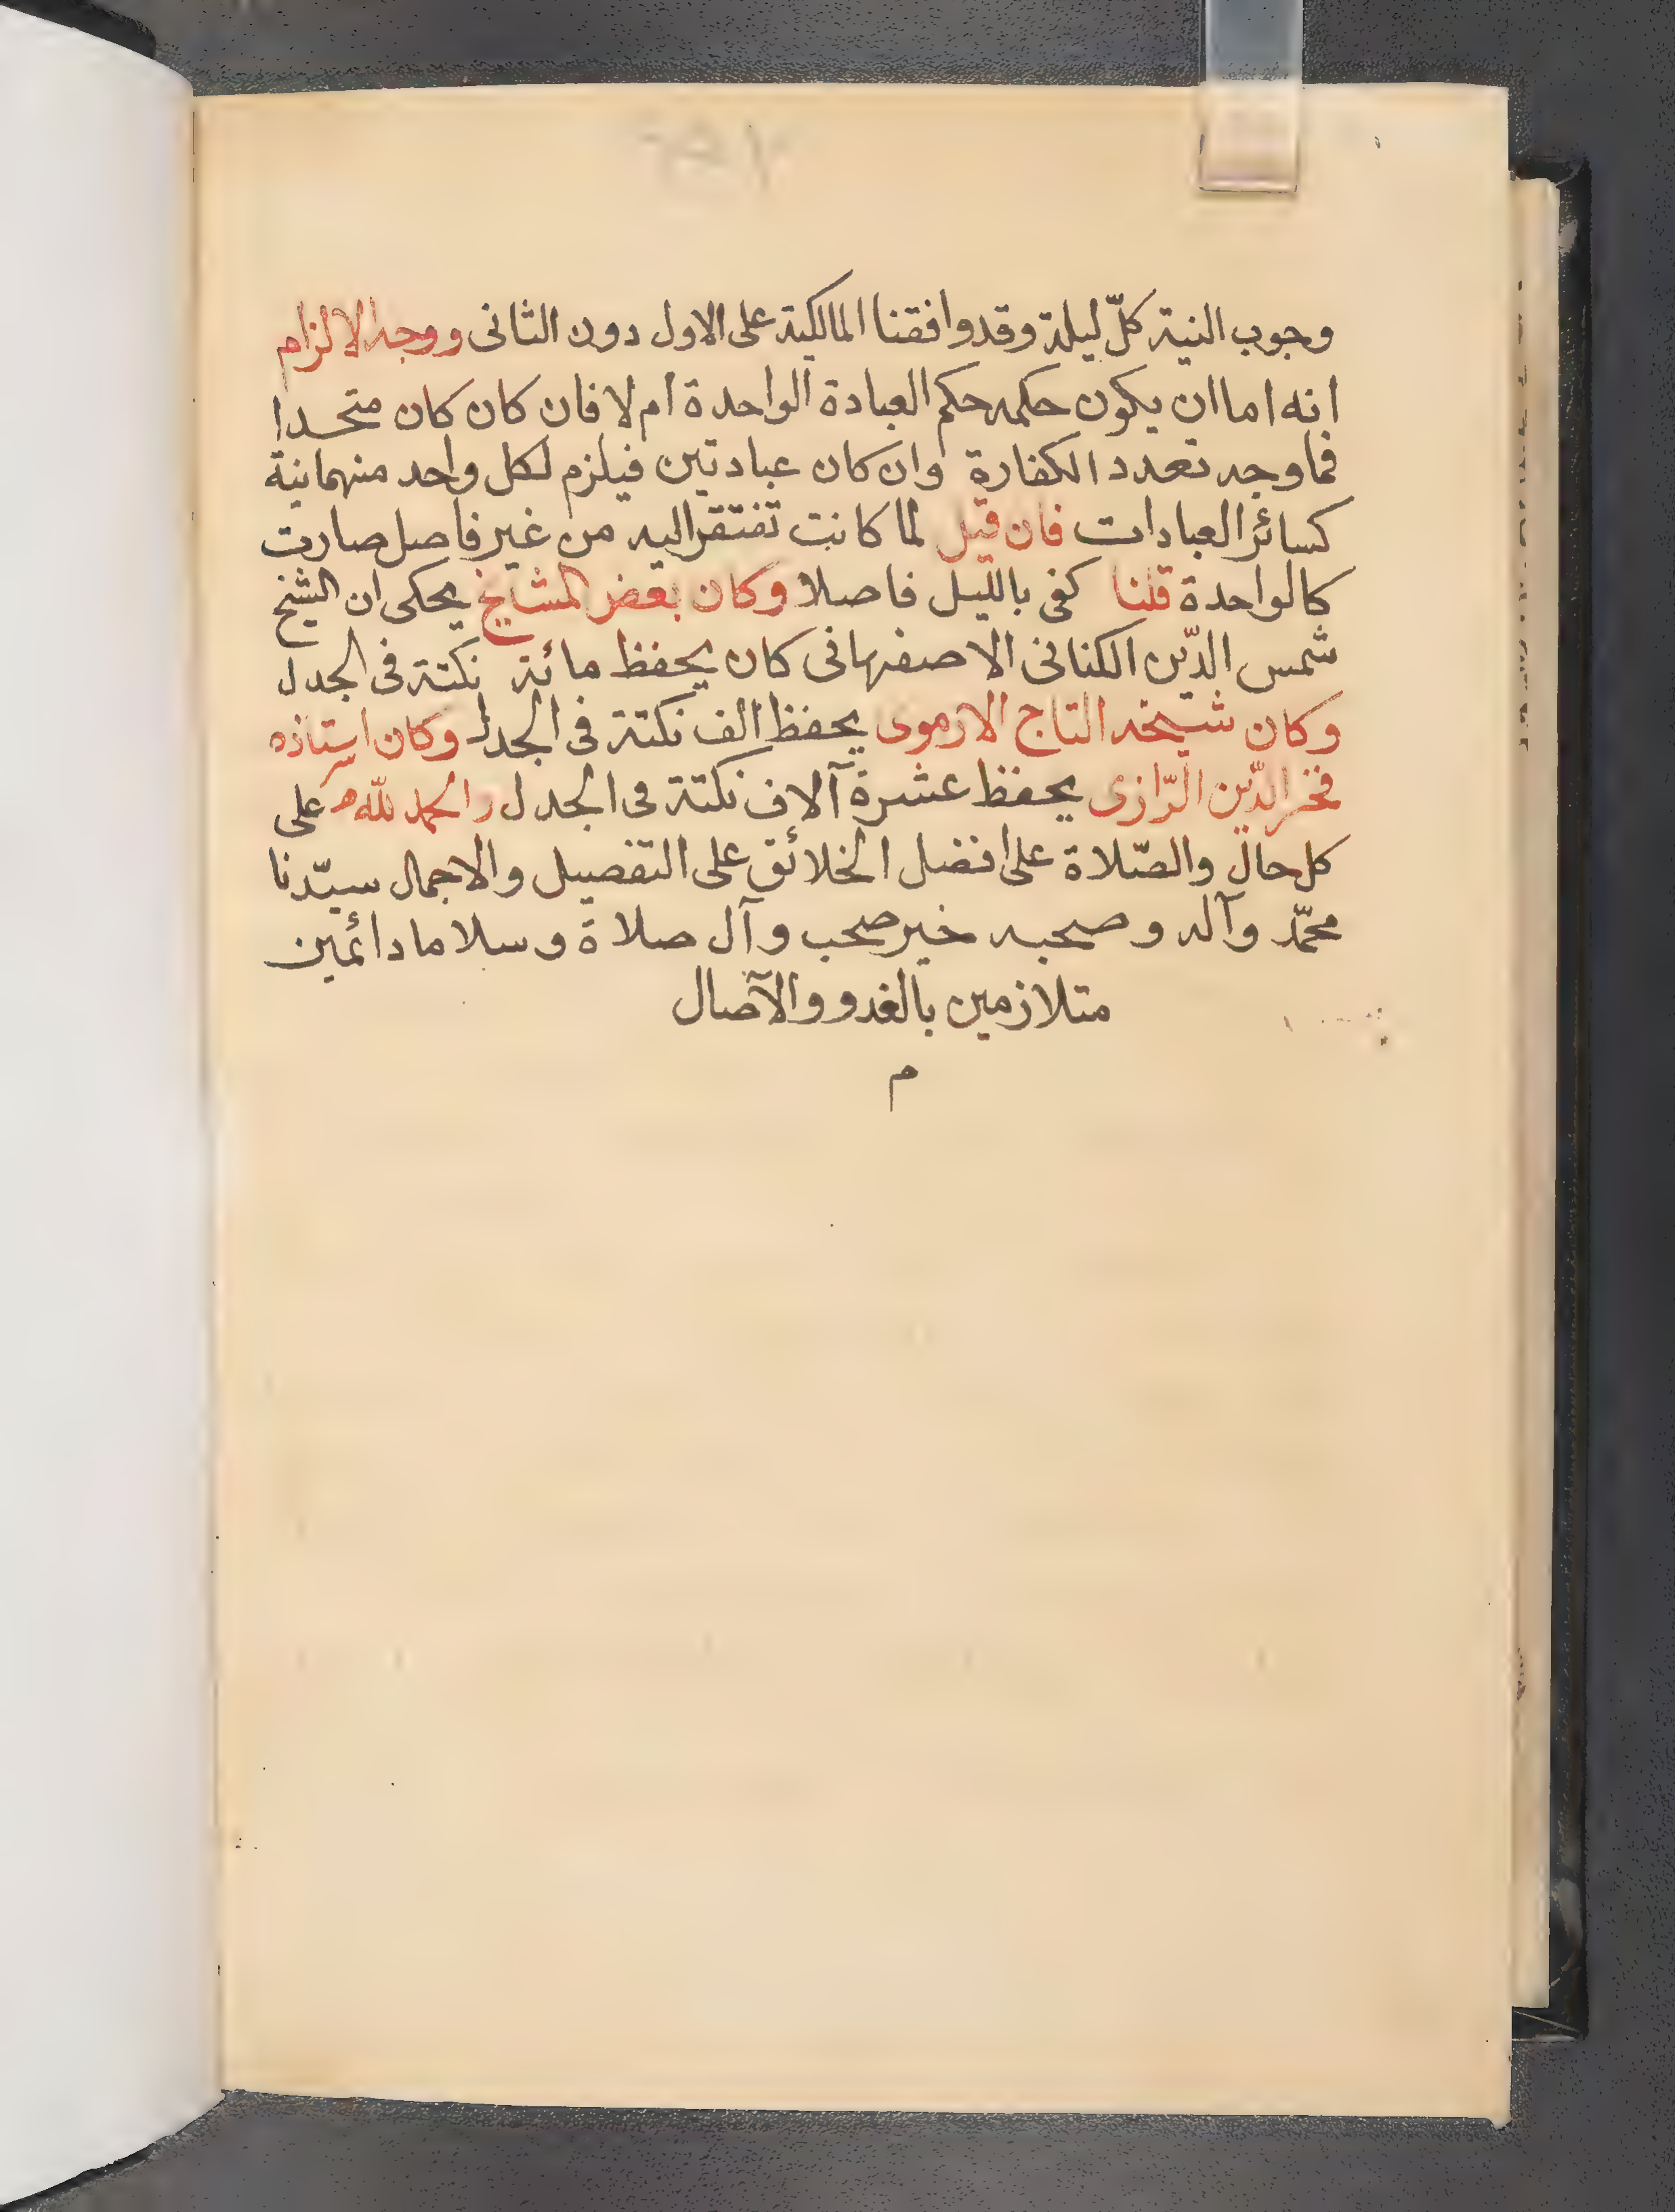 وجوب النية كلّ ليلة وقد وافقنا المالكية على الاول دون الثانى ووجه الالزام
انه اما ان يكون حكمه حكم العبادة الواحدة ام لا فان كان كان متحدا
فما وجه تعدد الكفارة وان كان عبادتين فيلزم لكل واحد منهما نية
كسائر العبادات فان قيل لما كانت تفتقر اليه من غير فاصل صارت
كالواحدة قلنا كفى بالليل فاصلا وكان بعض المشايخ يحكى ان الشيخ
شمس الدّين الكنانى الاصفهانى كان يحفظ مائة نكتة فى الجدل
وكان شيخه التاج الارموى يحفظ الف نكتة فى الجدل وكان استاذه
فخر الدّين الرّازى يحفظ عشرة آلاف نكتة فى الجدل والحمد لله على
كل حال والصّلاة على افضل الخلائق على التفصيل والاجمال سيّدنا
محمّد وآله وصحبه خير صحب وآل صلاة وسلاما دائمين
متلازمين بالغدو والآصال
م